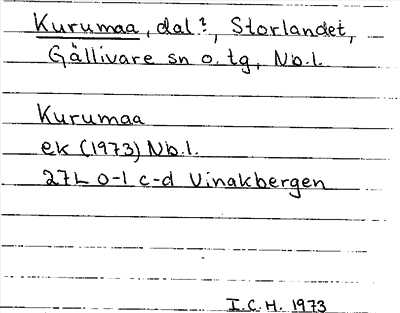 Kurumaa, dal?, Storlandet,
Gällivare sn o. tg, Nb.l.
Kurumaa
ek (1973) Nb.l.
27L 0-1 c-d Vinakbergen
I.C.H. 1973